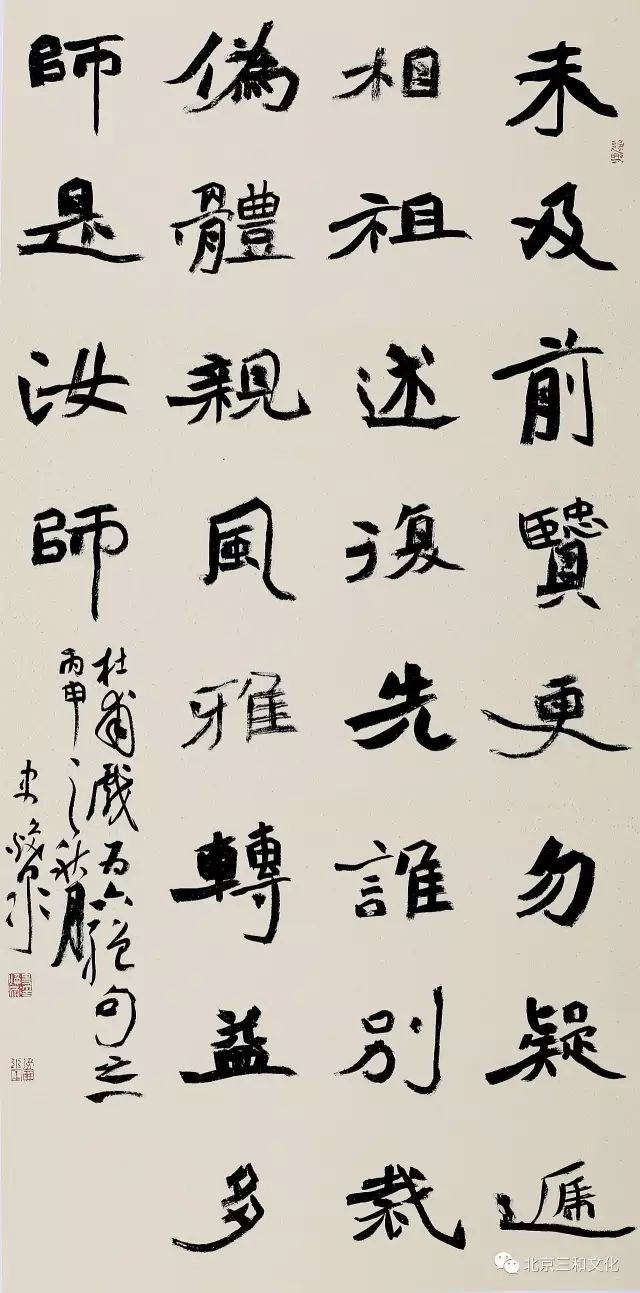 未及前贒更勿疑遞
相祖述復先誰別裁
偽體親風雅轉益多
師是汝師
杜甫戲为六絕句之一
丙申之秋月
北京三和文化